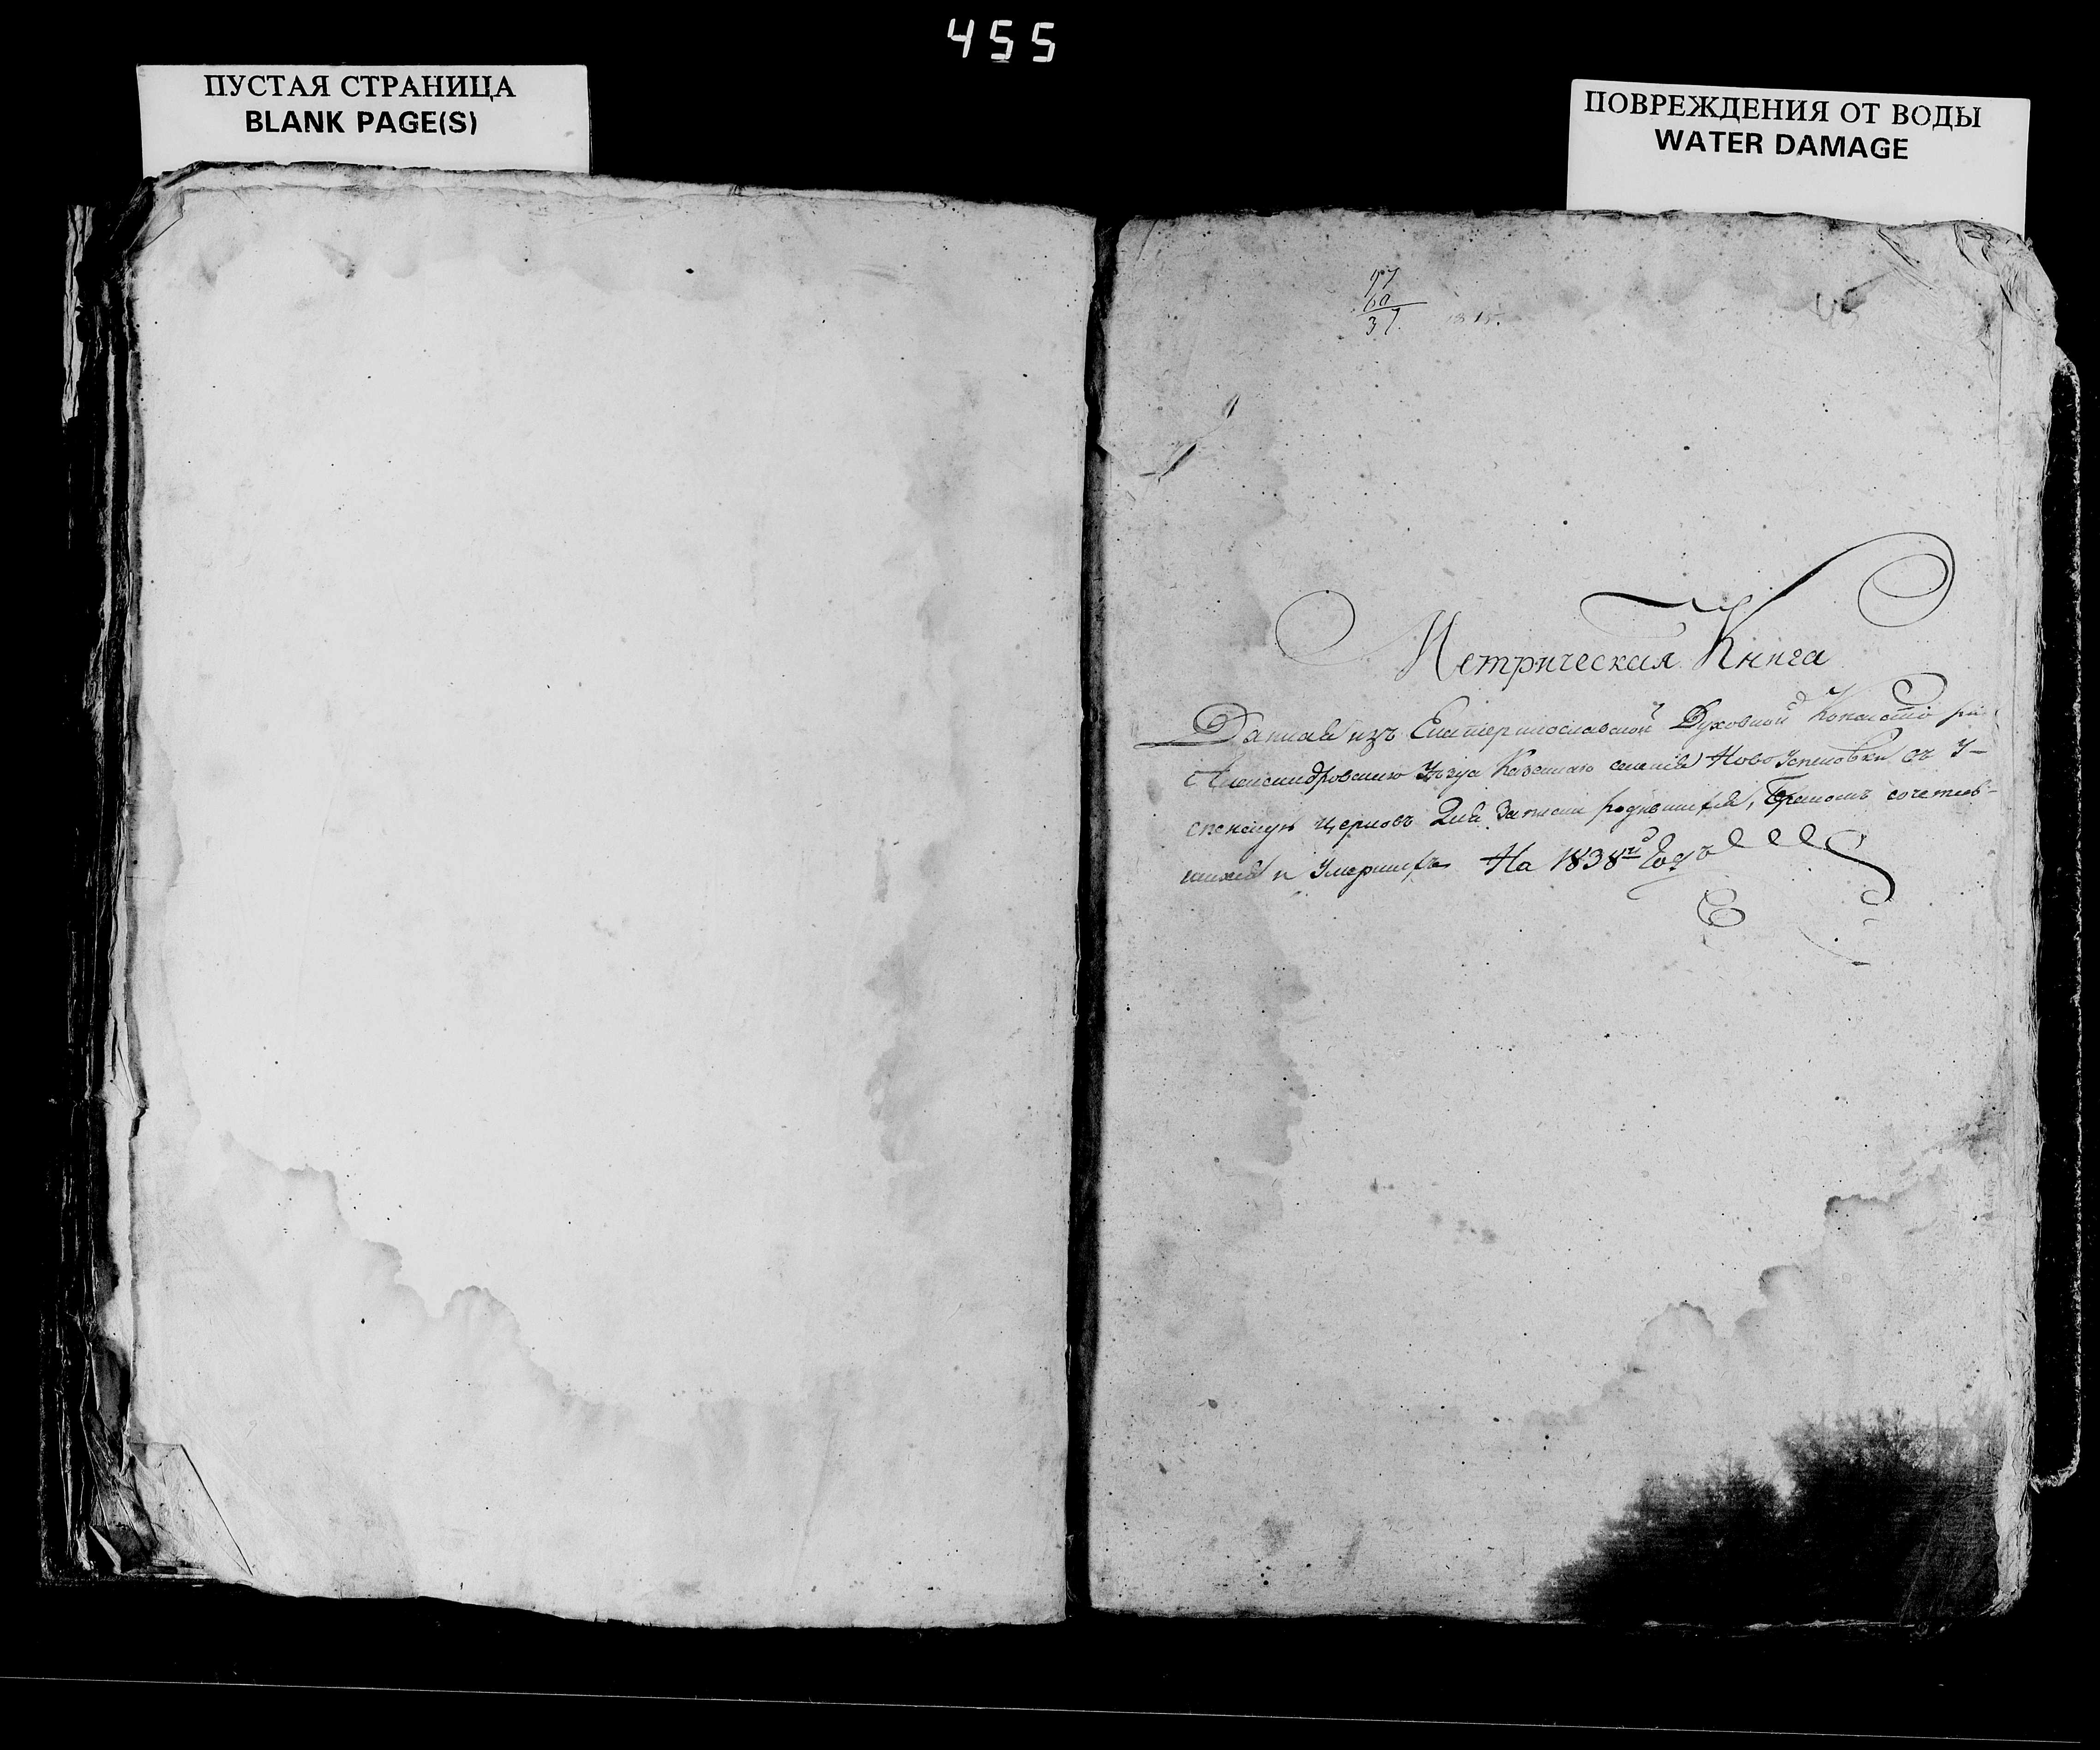 455
ПУСТАЯ СТРАНИЦА
BLANK PAGE(S)
ПОВРЕЖДЕНИЯ ОТ ВОДЫ
WATER DAMAGE
97
60
37.
Метрическая Книга
Данная изъ Екатеринославской Духовной Консисторіи
Александровскаго Уѣзда Казеннаго селенія Ново Успеновки въ У-
спенскую церковь Для Записки родившихся, Бракомъ сочетав-
шихся и Умершихъ На 1838й Годъ